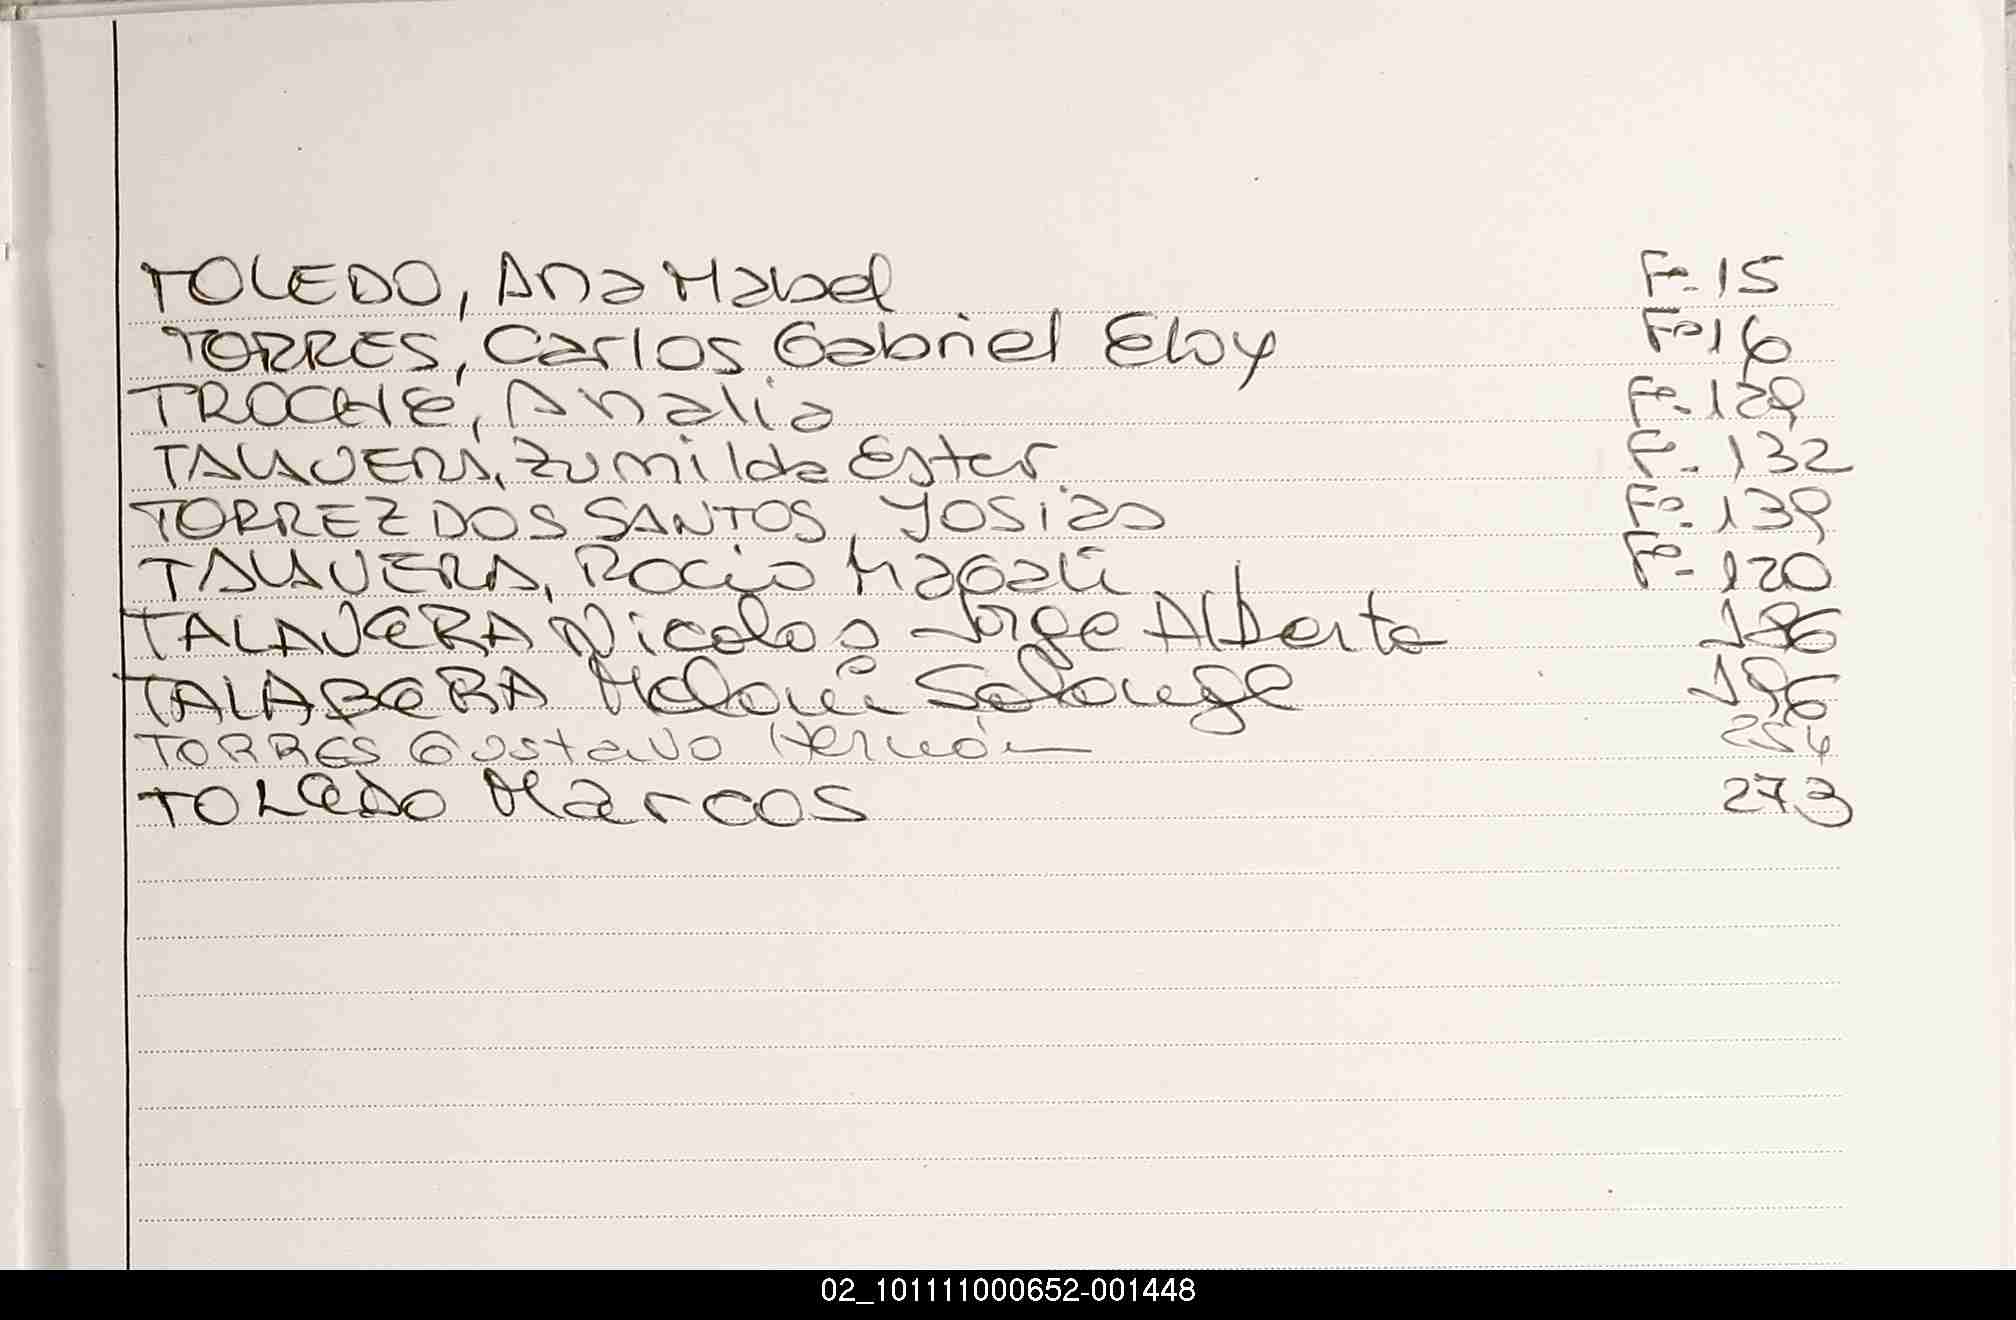 TOLEDO, Ana Mabel Fº. 15
TORRES, Carlos Gabriel Eloy Fº 16
TROCHE, Analia Fº. 129
TALAVERA, Zumilda Ester Fº. 132
TORREZ DOS SANTOS, Josias Fº. 139
TALAVERA, Rocio Magali Fº. 120
TALAVERA Nicolas Jorge Alberto 186
TALABERA Melani Solange 196
TORRES Gustavo Hernán 254
TOLEDO Marcos 273
02_101111000652-001448